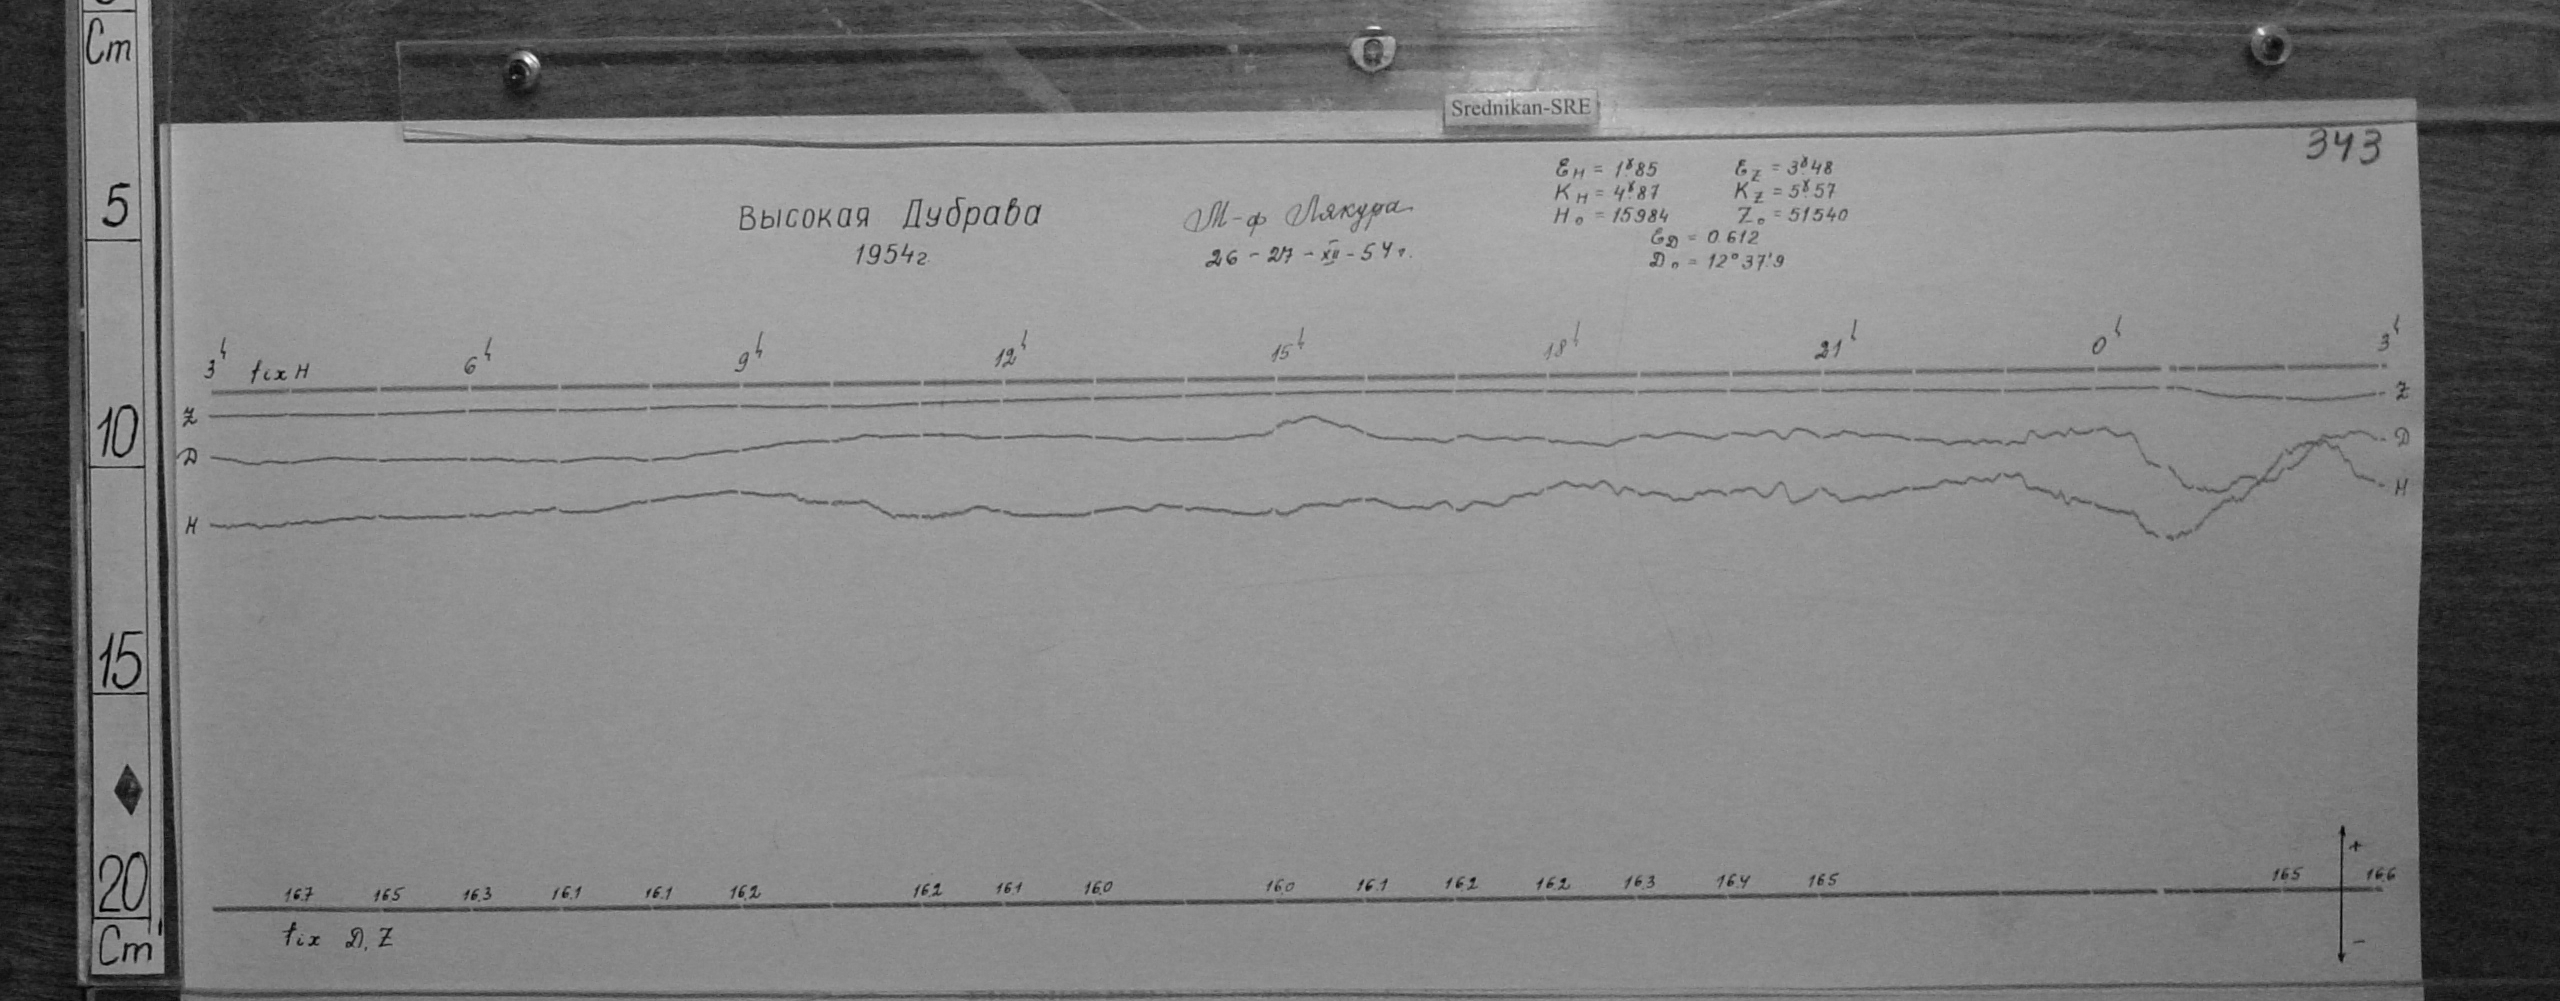 Cm
5
10
15
20
Cm
Srednikan-SRE
343
Высокая Дубрава
1954г
М-ф Лякура
26-27-XII-54г.
Ɛн = 1ˠ.85 Ɛz = 3ˠ.48
Kн = 4ˠ.87 Kz = 5ˠ.57
Hо = 15984 Zо = 51540
ƐD = 0.612
Dо = 12°37'.9
3h 6h 9h 12h 15h 18h 21h 0h 3h
fix H
Z Z
D D
H H
16.7 16.5 16.3 16.1 16.1 16.2 16.2 16.1 16.0 16.0 16.1 16.2 16.2 16.3 16.4 16.5 16.5 16.6
+
fix D, Z
−